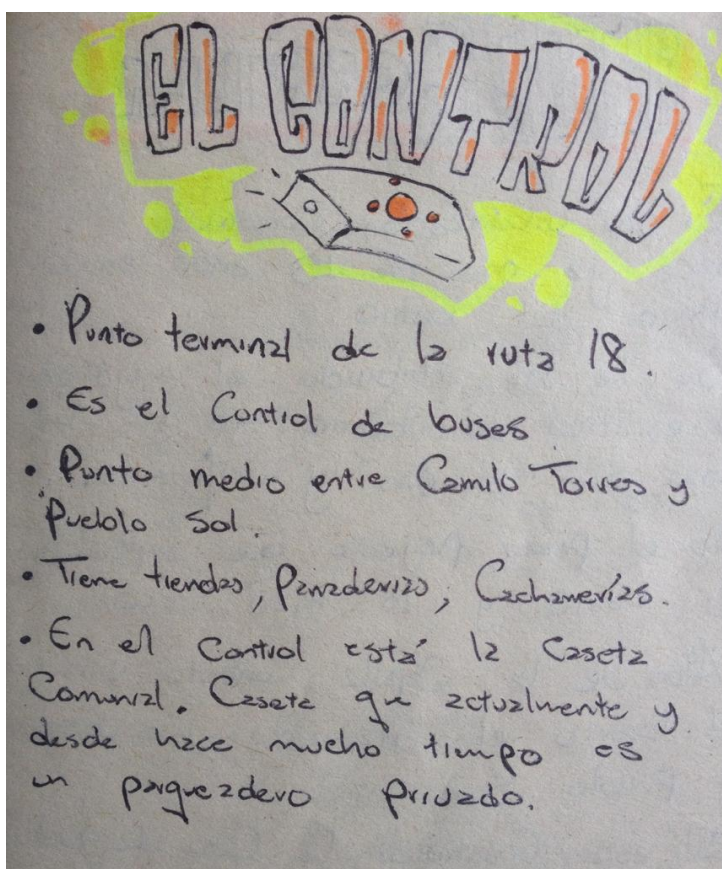 EL CONTROL
• Punto terminal de la ruta 18.
• Es el Control de buses
• Punto medio entre Camilo Torres y
Pueblo Sol.
• Tiene tiendas, Panaderias, Cachamerías.
• En el Control está la Caseta
Comunal. Caseta que actualmente y
desde hace mucho tiempo es
un parqueadero privado.